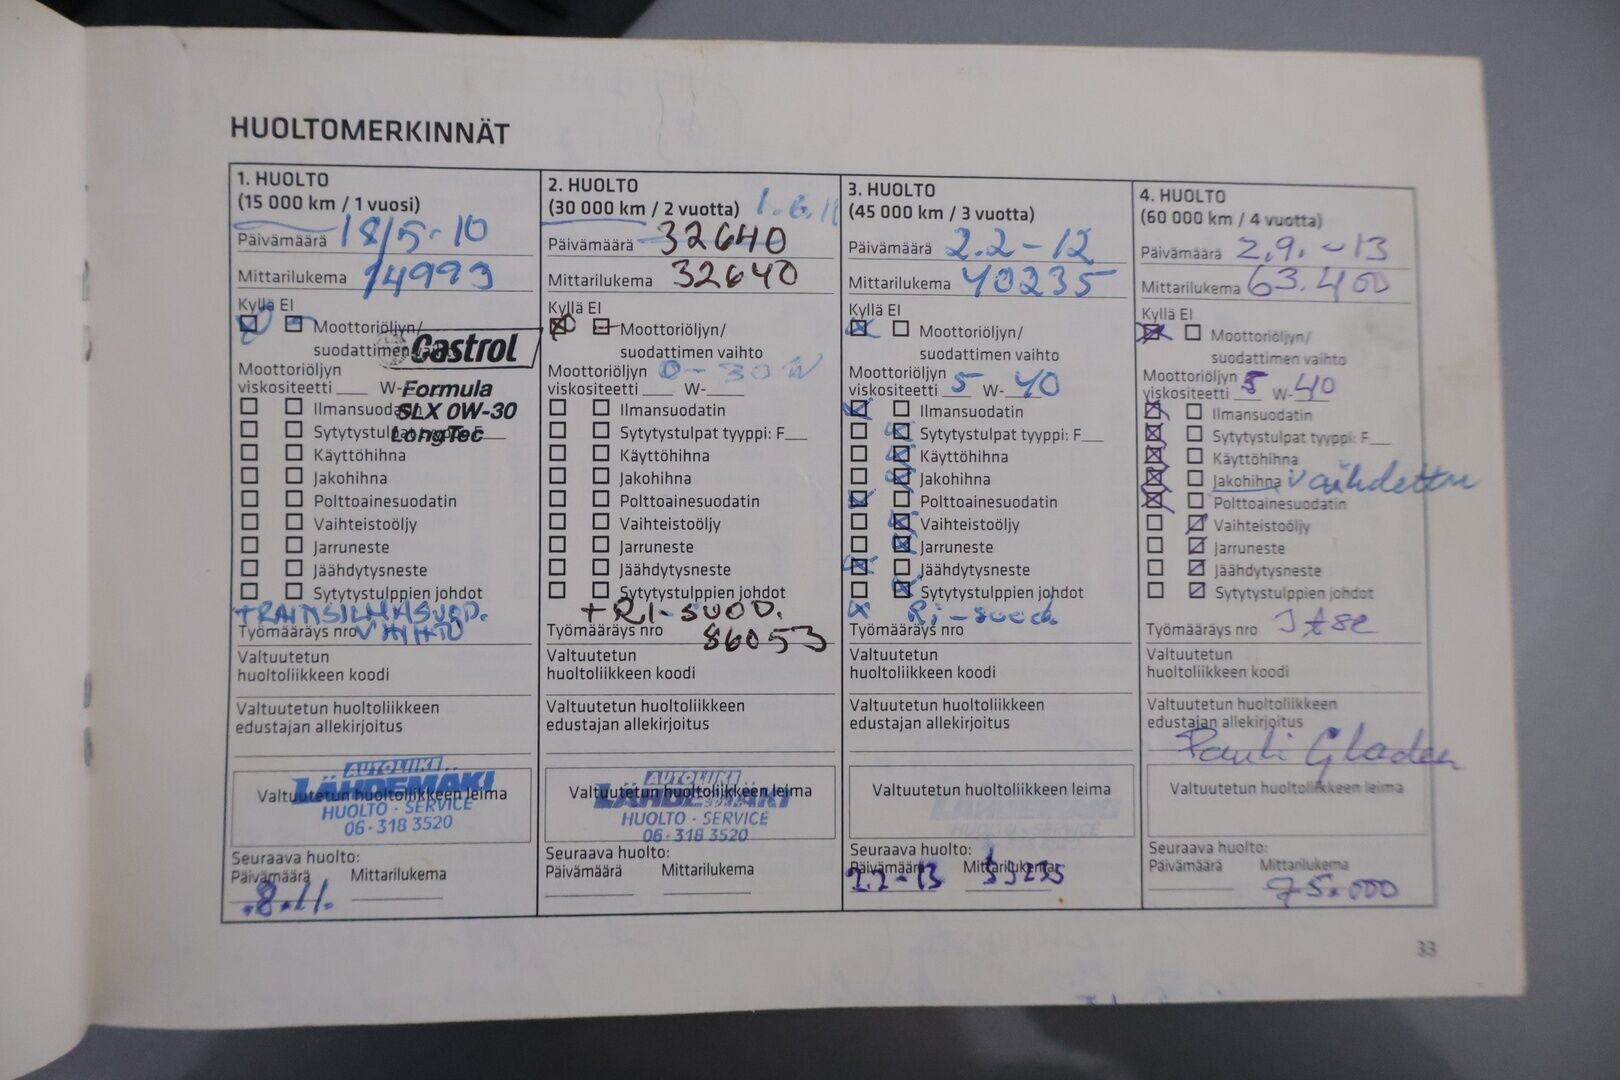 HUOLTOMERKINNÄT
1. HUOLTO
(15 000 km / 1 vuosi)
Päivämäärä 18/5-10
Mittarilukema 14993
Kyllä EI
Moottoriöljyn/
suodattimen vaihto
Castrol
Moottoriöljyn
viskositeetti ___ W-
Formula
SLX 0W-30
LongTec
Ilmansuodatin
Sytytystulpat tyyppi: F___
Käyttöhihna
Jakohihna
Polttoainesuodatin
Vaihteistoöljy
Jarruneste
Jäähdytysneste
Sytytystulppien johdot
Työmääräys nro
Valtuutetun
huoltoliikkeen koodi
Valtuutetun huoltoliikkeen
edustajan allekirjoitus
Valtuutetun huoltoliikkeen leima
AUTOLIIKE
LÄHDEMÄKI
HUOLTO - SERVICE
06-318 3520
Seuraava huolto:
Päivämäärä Mittarilukema
2. HUOLTO
(30 000 km / 2 vuotta)
Päivämäärä 32640
Mittarilukema 32640
Kyllä EI
Moottoriöljyn/
suodattimen vaihto
Moottoriöljyn 0-30W
viskositeetti ___ W-___
Ilmansuodatin
Sytytystulpat tyyppi: F___
Käyttöhihna
Jakohihna
Polttoainesuodatin
Vaihteistoöljy
Jarruneste
Jäähdytysneste
Sytytystulppien johdot
+ RI-SUOD.
Työmääräys nro 86053
Valtuutetun
huoltoliikkeen koodi
Valtuutetun huoltoliikkeen
edustajan allekirjoitus
Valtuutetun huoltoliikkeen leima
AUTOLIIKE
LÄHDEMÄKI
HUOLTO - SERVICE
06-318 3520
Seuraava huolto:
Päivämäärä Mittarilukema
3. HUOLTO
(45 000 km / 3 vuotta)
Päivämäärä 2.2-12
Mittarilukema 40235
Kyllä EI
Moottoriöljyn/
suodattimen vaihto
Moottoriöljyn
viskositeetti 5 W-40
Ilmansuodatin
Sytytystulpat tyyppi: F___
Käyttöhihna
Jakohihna
Polttoainesuodatin
Vaihteistoöljy
Jarruneste
Jäähdytysneste
Sytytystulppien johdot
Ri-suod.
Työmääräys nro
Valtuutetun
huoltoliikkeen koodi
Valtuutetun huoltoliikkeen
edustajan allekirjoitus
Valtuutetun huoltoliikkeen leima
Seuraava huolto:
Päivämäärä Mittarilukema
2.2-13 55235
4. HUOLTO
(60 000 km / 4 vuotta)
Päivämäärä 2.9.-13
Mittarilukema 63.400
Kyllä EI
Moottoriöljyn/
suodattimen vaihto
Moottoriöljyn
viskositeetti 5 W-40
Ilmansuodatin
Sytytystulpat tyyppi: F___
Käyttöhihna
Jakohihna vaihdettu
Polttoainesuodatin
Vaihteistoöljy
Jarruneste
Jäähdytysneste
Sytytystulppien johdot
Työmääräys nro Itse
Valtuutetun
huoltoliikkeen koodi
Valtuutetun huoltoliikkeen
edustajan allekirjoitus
Valtuutetun huoltoliikkeen leima
Seuraava huolto:
Päivämäärä Mittarilukema
75.000
33